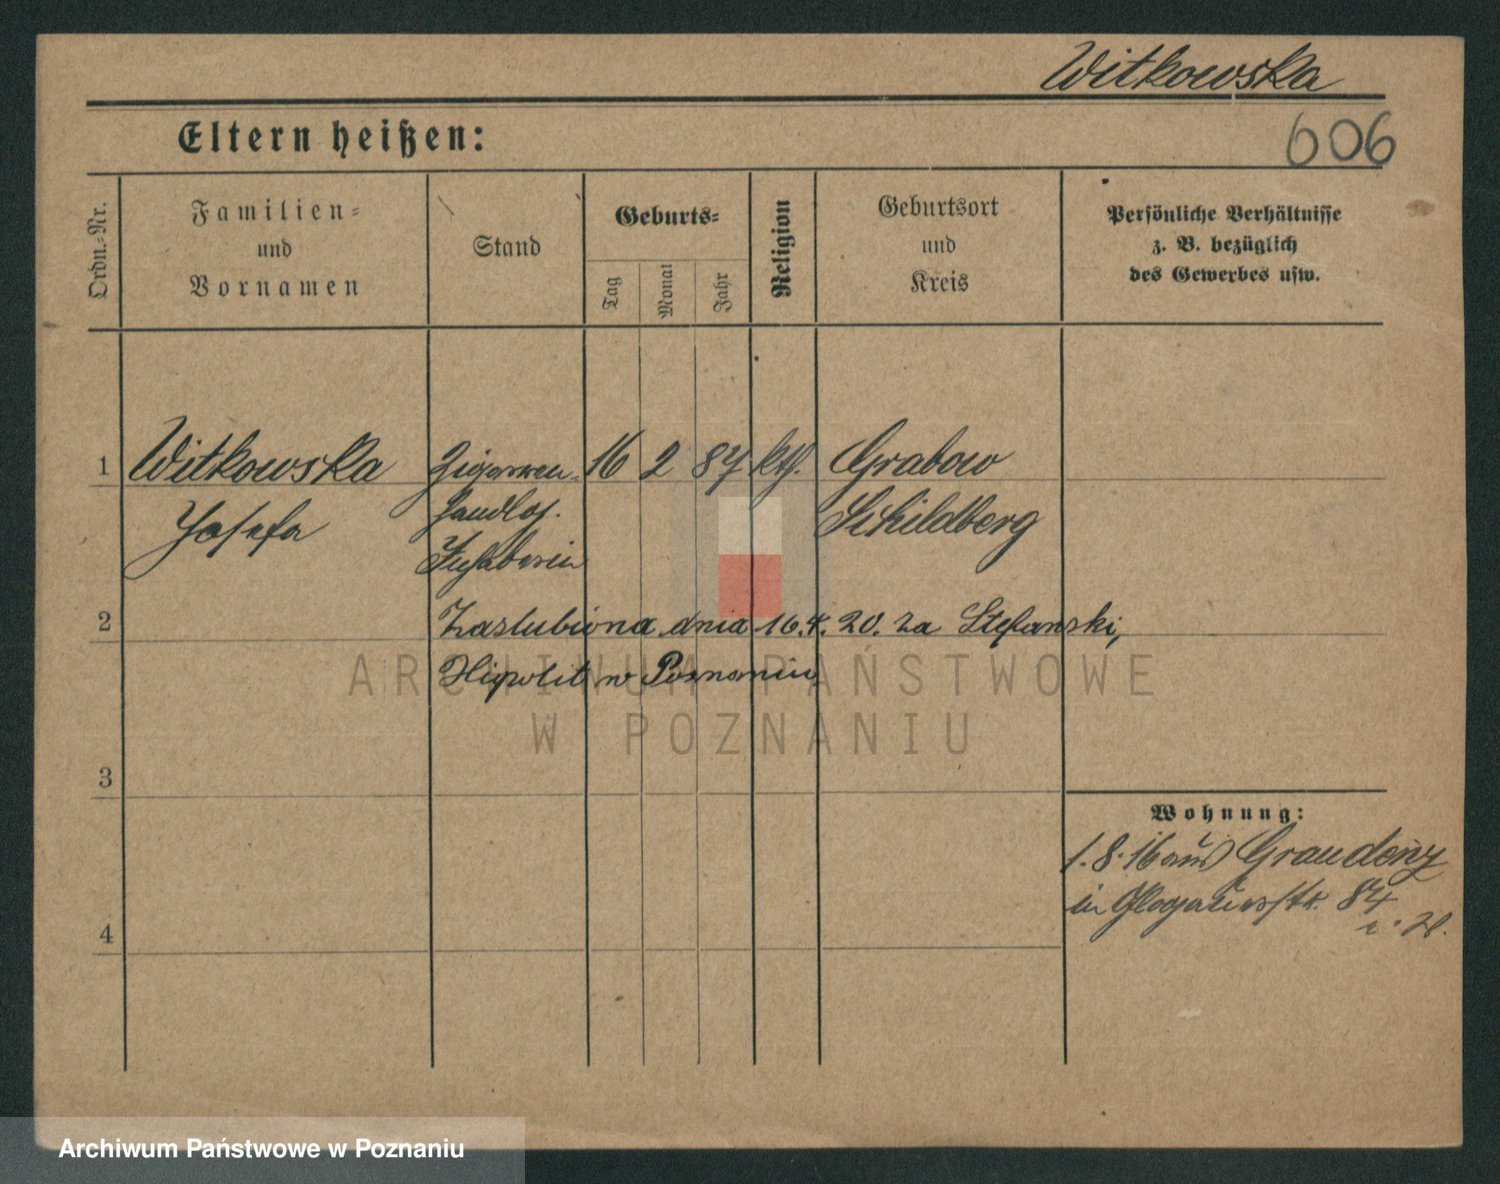 Witkowska
Eltern heißen:
606
Ordn.-Nr.
Familien-
und
Vornamen
Stand
Geburts-
Tag
Monat
Jahr
Religion
Geburtsort
und
Kreis
Persönliche Verhältnisse
z. B. bezüglich
des Gewerbes usw.
1
Witkowska
Josefa
Zigarren-
handlgs.
Inhaberin
16 2 87 kth.
Grabow
Schildberg
2
Zaslubiona dnia 16.4.20. za Stefanski,
Hipolit w Poznaniu
ARCHIWUM PAŃSTWOWE
W POZNANIU
3
4
Wohnung:
1.8.16 aus Graudenz
in Glogauerstr. 84
Archiwum Państwowe w Poznaniu